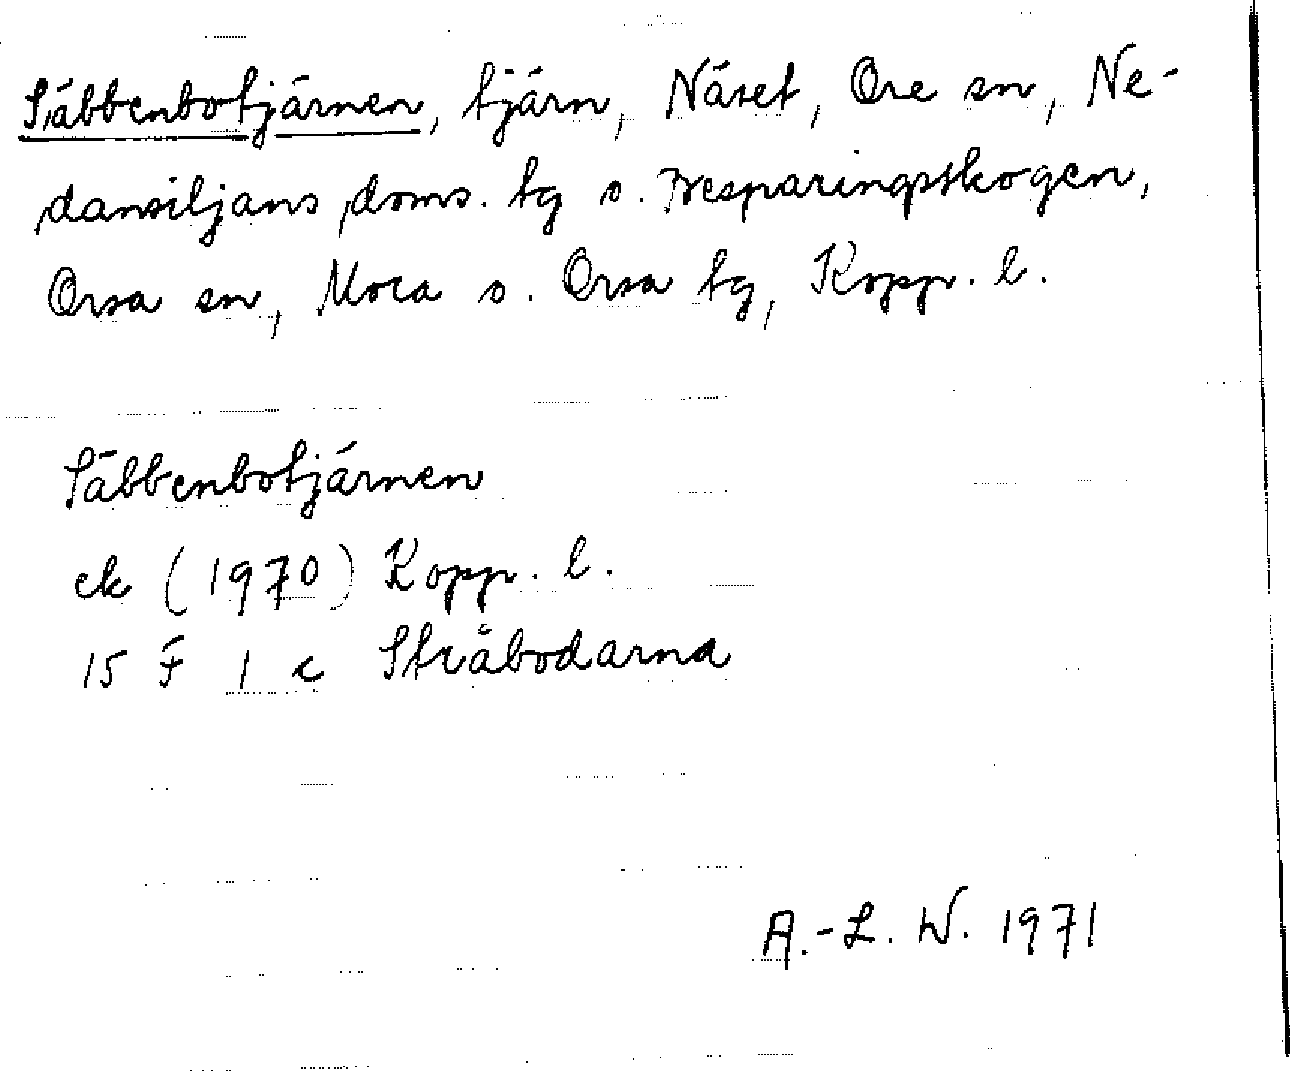 Säbbenbotjärnen, tjärn, Näset, Ore sn, Ne-
dansiljans doms. tg o. Besparingsskogen,
Orsa sn, Mora o. Orsa tg, Kopp. l.
Säbbenbotjärnen
ek (1970) Kopp. l.
15 F 1 c Stråbodarna
A.-L. W. 1971